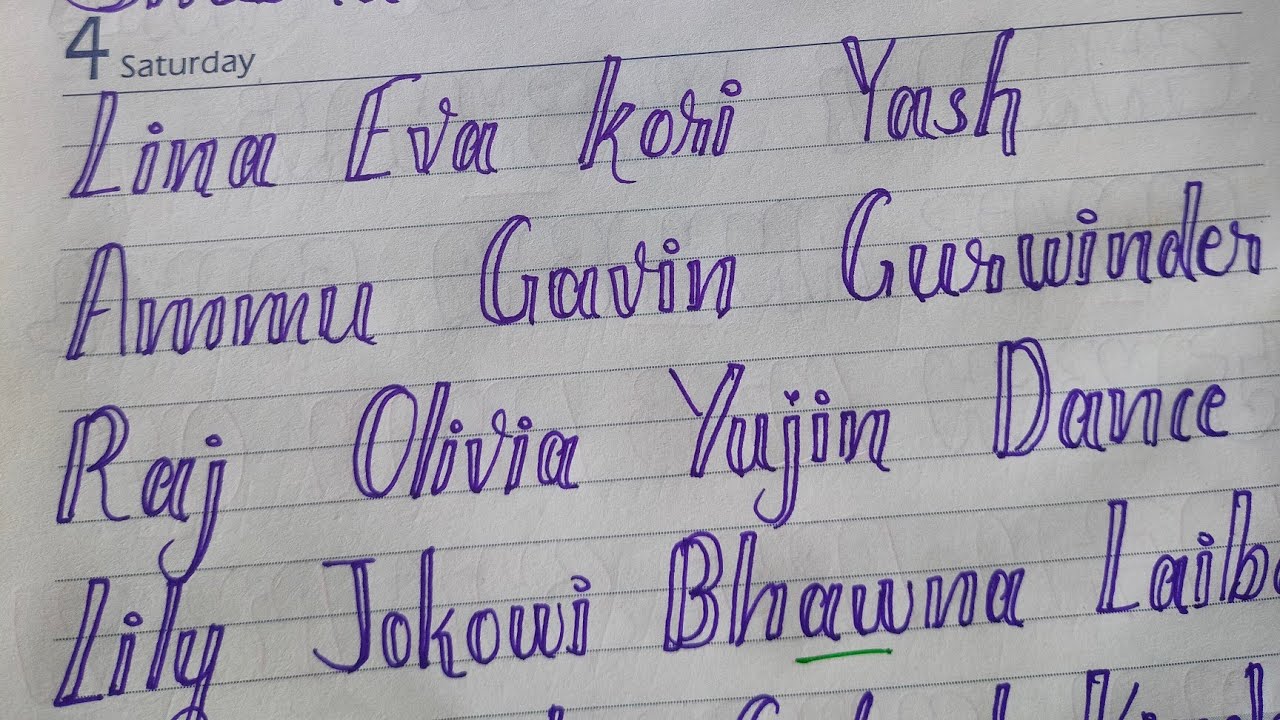 4 Saturday
Lina Eva Kori Yash
Ammu Gavin Gurwinder
Raj Olivia Yujin Dance
Lily Jokowi Bhawna